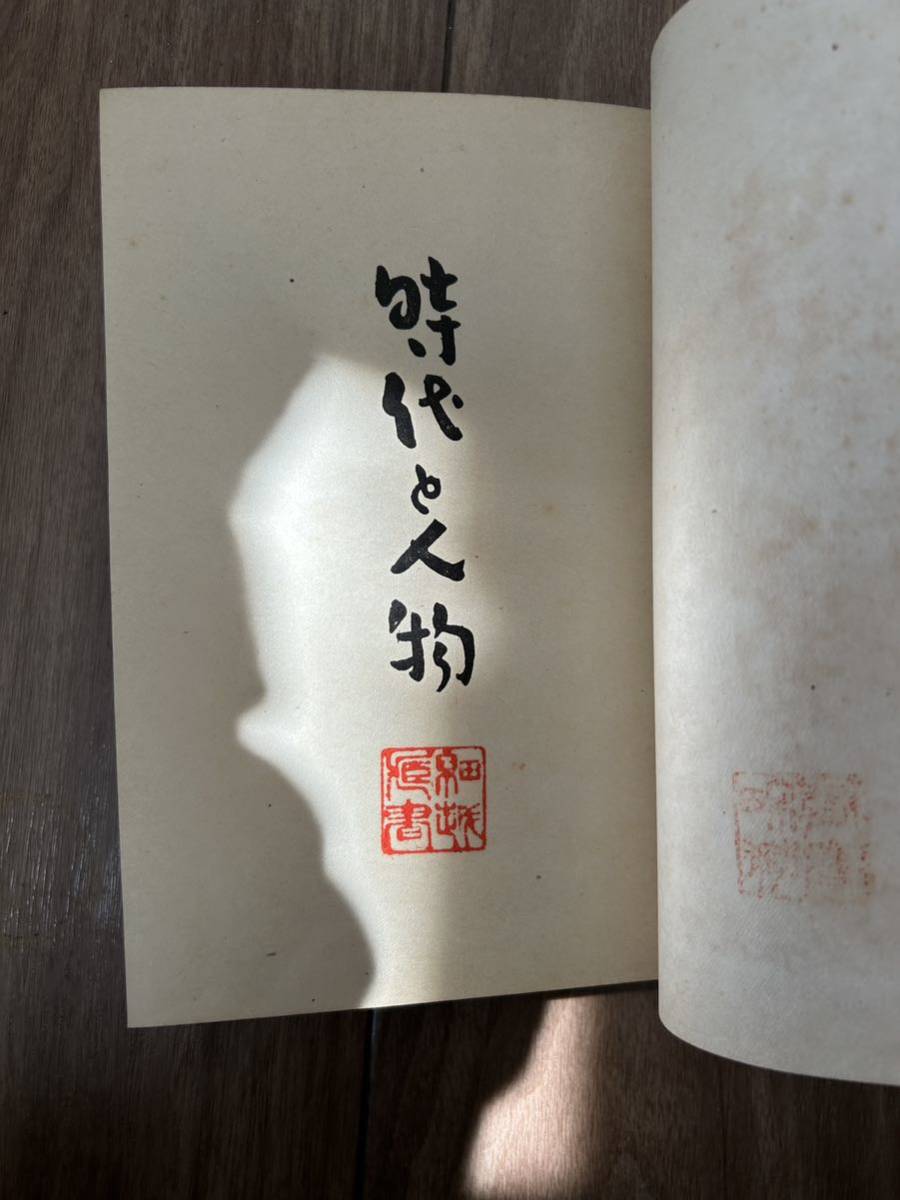 時代と人物
細越
蔵書